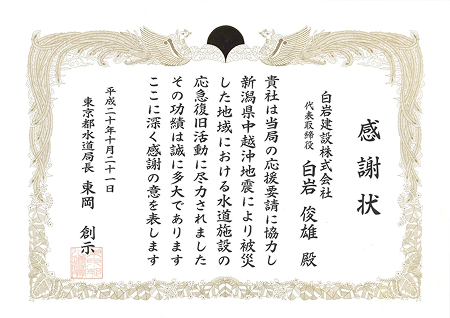 感謝状
白岩建設株式会社
代表取締役 白岩 俊雄 殿
貴社は当局の応援要請に協力し
新潟県中越沖地震により被災
した地域における水道施設の
応急復旧活動に尽力されました
その功績は誠に多大であります
ここに深く感謝の意を表します
平成二十年十月二十一日
東京都水道局長 東岡 創示